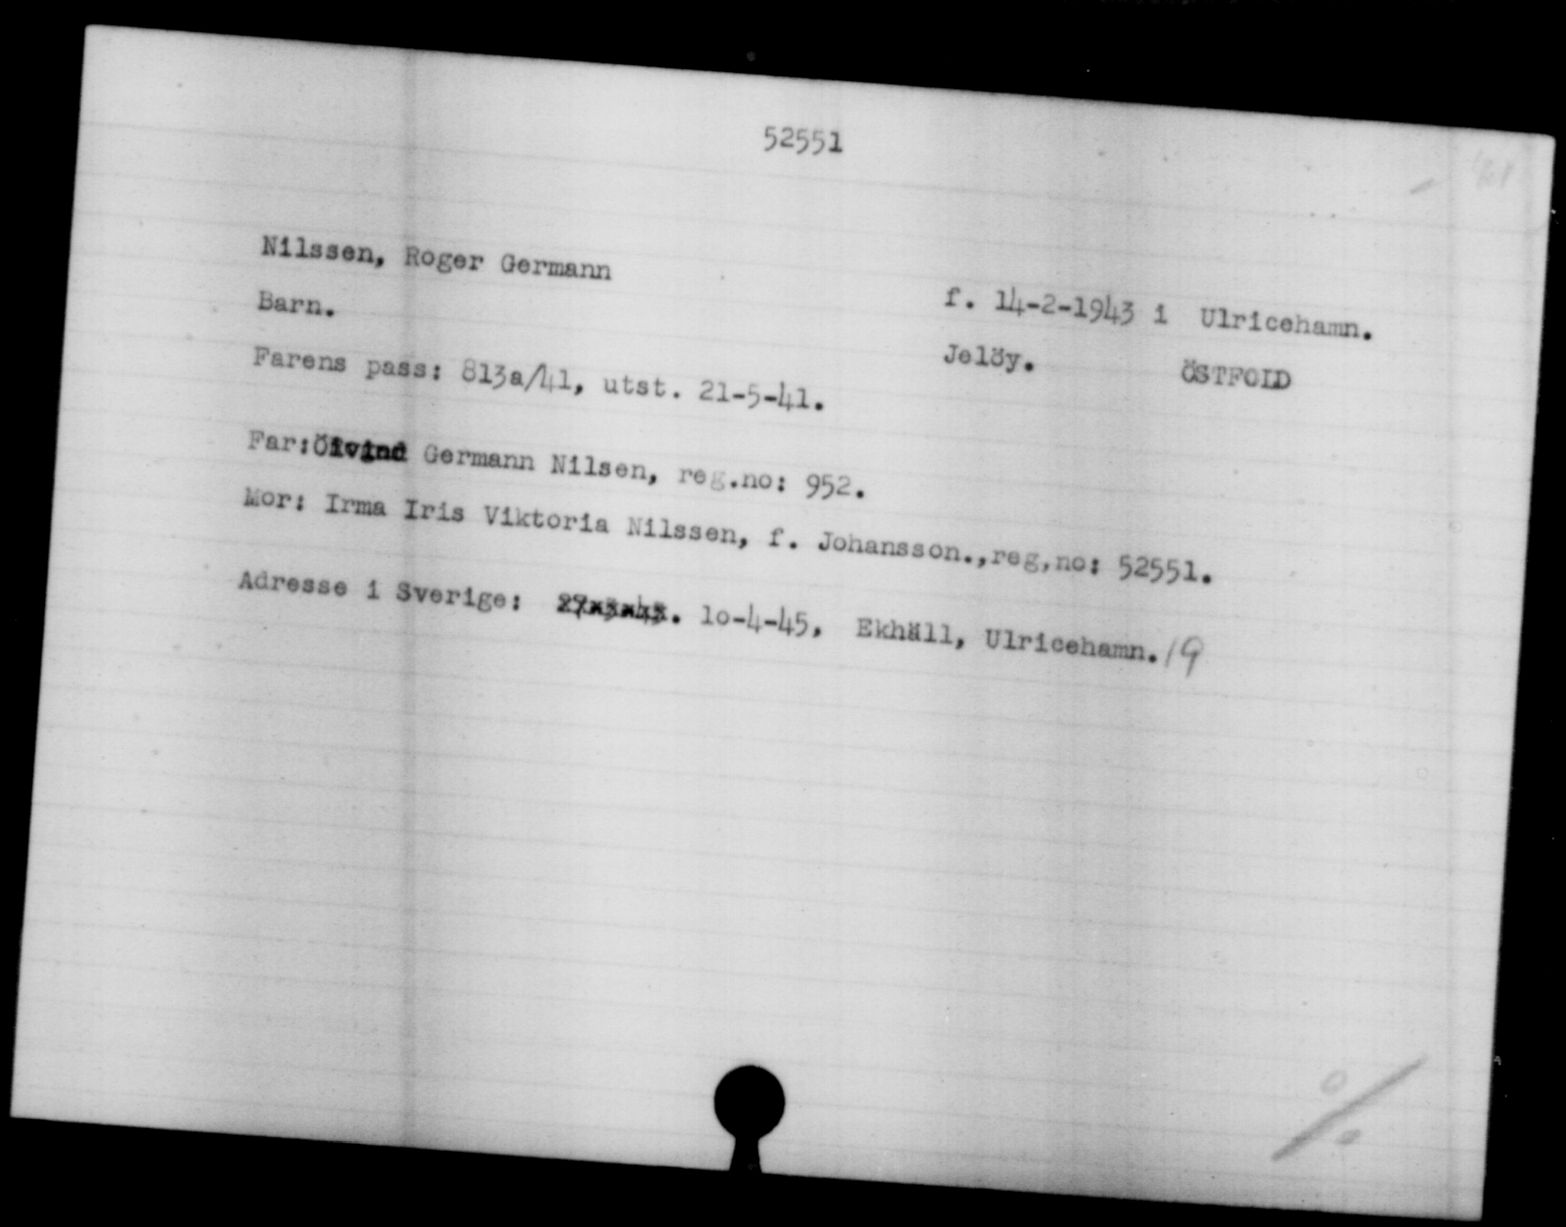 52551
Nilssen, Roger Germann
f. 14-2-1943 i Ulricehamn.
Barn.
Jelöy. ÖSTFOLD
Farens pass: 813a/41, utst. 21-5-41.
Far:Öivind Germann Nilsen, reg.no: 952.
Mor: Irma Iris Viktoria Nilssen, f. Johansson.,reg,no: 52551.
Adresse i Sverige: 10-4-45, Ekhäll, Ulricehamn./9